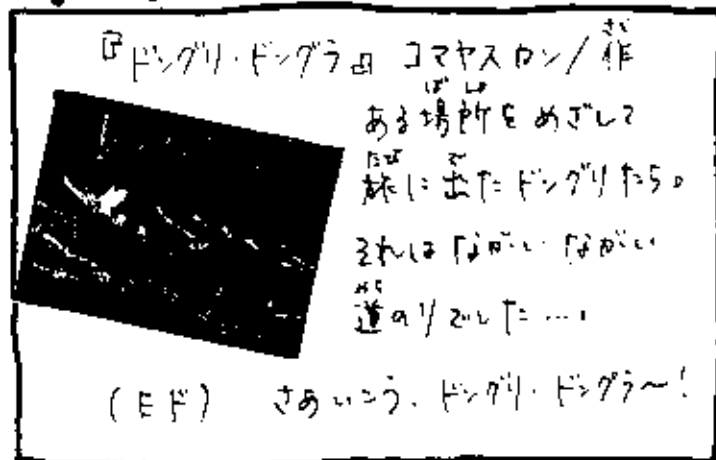 『ドングリ・ドングラ』 コマヤスカン/作
ある場所をめざして
旅に出たドングリたち。
それはながいながい
道のりでした…。
(Eド) さあいこう、ドングリ・ドングラ〜!